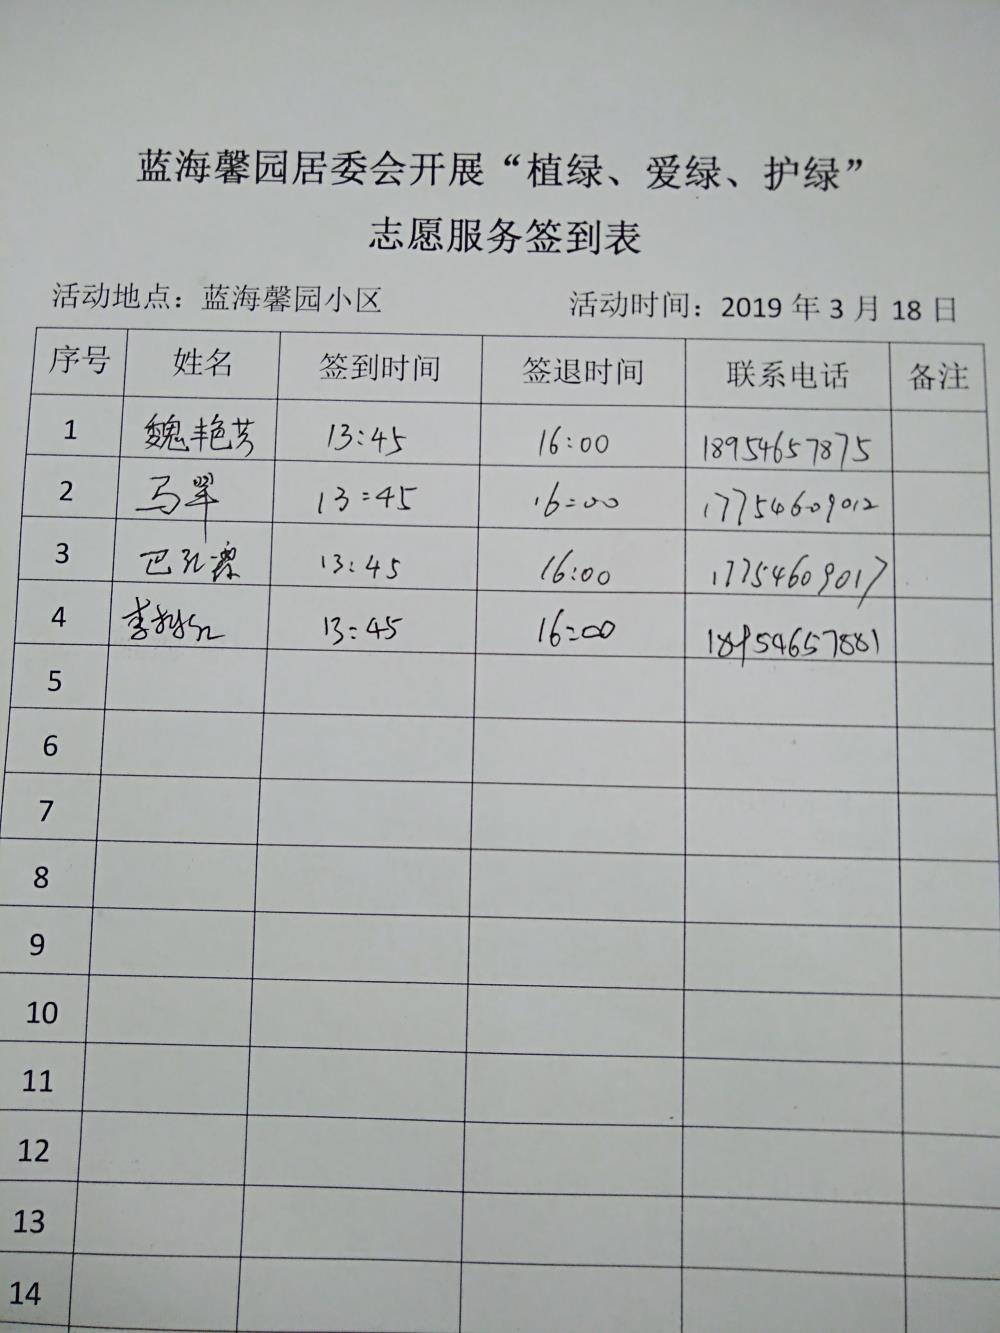 蓝海馨园居委会开展“植绿、爱绿、护绿”
志愿服务签到表
活动地点：蓝海馨园小区 活动时间：2019 年 3 月 18 日
序号 姓名 签到时间 签退时间 联系电话 备注
1 魏艳芳 13:45 16:00 18954657875
2 马翠 13:45 16:00 17754609012
3 巴孔 13:45 16:00 17754609017
4 李 13:45 16:00 18954657881
5
6
7
8
9
10
11
12
13
14